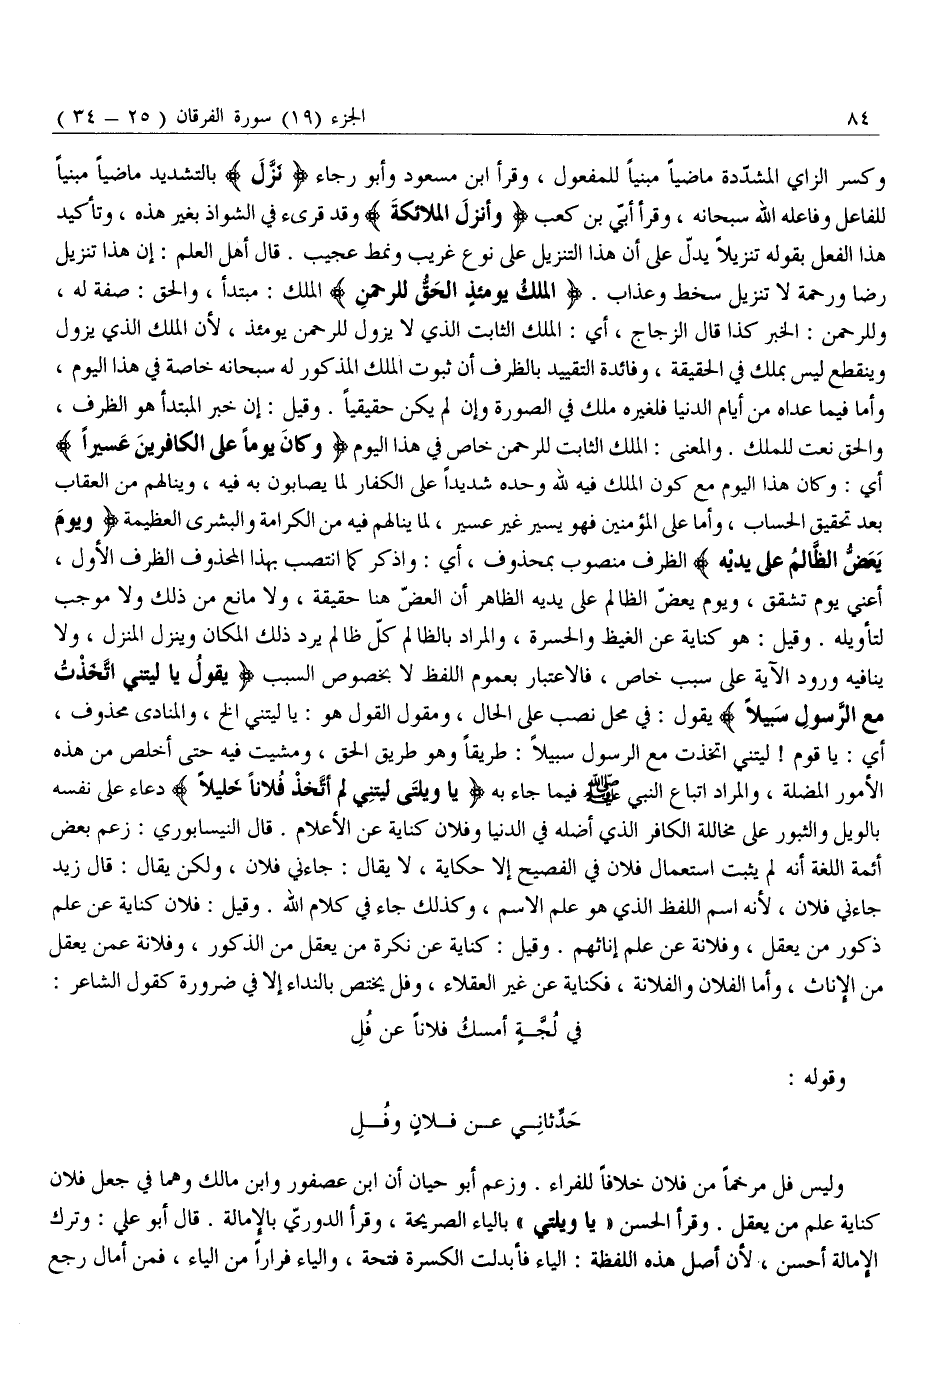 ٨٤
الجزء (١٩) سورة الفرقان ( ٢٥ – ٣٤ )
وكسر الزاي المشدّدة ماضياً مبنياً للمفعول ، وقرأ ابن مسعود وأبو رجاء ﴿ نَزَّلَ ﴾ بالتشديد ماضياً مبنياً
للفاعل وفاعله الله سبحانه ، وقرأ أبيّ بن كعب ﴿ وأنزلَ الملائكةَ ﴾ وقد قرىء في الشواذ بغير هذه ، وتأكيد
هذا الفعل بقوله تنزيلاً يدلّ على أن هذا التنزيل على نوع غريب ونمط عجيب . قال أهل العلم : إن هذا تنزيل
رضا ورحمة لا تنزيل سخط وعذاب . ﴿ الملكُ يومئذٍ الحَقُّ للرحمنِ ﴾ الملك : مبتدأ ، والحق : صفة له ،
وللرحمن : الخبر كذا قال الزجاج ، أي : الملك الثابت الذي لا يزول للرحمن يومئذ ، لأن الملك الذي يزول
وينقطع ليس بملك في الحقيقة ، وفائدة التقييد بالظرف أن ثبوت الملك المذكور له سبحانه خاصة في هذا اليوم ،
وأما فيما عداه من أيام الدنيا فلغيره ملك في الصورة وإن لم يكن حقيقياً . وقيل : إن خبر المبتدأ هو الظرف ،
والحق نعت للملك . والمعنى : الملك الثابت للرحمن خاص في هذا اليوم ﴿ وكانَ يوماً على الكافرينَ عَسيراً ﴾
أي : وكان هذا اليوم مع كون الملك فيه لله وحده شديداً على الكفار لما يصابون به فيه ، وينالهم من العقاب
بعد تحقيق الحساب ، وأما على المؤمنين فهو يسير غير عسير ، لما ينالهم فيه من الكرامة والبشرى العظيمة ﴿ ويومَ
يَعَضُّ الظَّالمُ على يديْه ﴾ الظرف منصوب بمحذوف ، أي : واذكر كما انتصب بهذا المحذوف الظرف الأول ،
أعني يوم تشقق ، ويوم يعضّ الظالم على يديه الظاهر أن العضّ هنا حقيقة ، ولا مانع من ذلك ولا موجب
لتأويله . وقيل : هو كناية عن الغيظ والحسرة ، والمراد بالظالم كلّ ظالم يرد ذلك المكان وينزل المنزل ، ولا
ينافيه ورود الآية على سبب خاص ، فالاعتبار بعموم اللفظ لا بخصوص السبب ﴿ يقولُ يا ليتني اتَّخَذْتُ
مع الرَّسولِ سَبيلاً ﴾ يقول : في محل نصب على الحال ، ومقول القول هو : يا ليتني الخ ، والمنادى محذوف ،
أي : يا قوم ! ليتني اتخذت مع الرسول سبيلاً : طريقاً وهو طريق الحق ، ومشيت فيه حتى أخلص من هذه
الأمور المضلة ، والمراد اتباع النبي ﷺ فيما جاء به ﴿ يا ويلتَى ليتنِي لم أتَّخذْ فُلاناً خَليلاً ﴾ دعاء على نفسه
بالويل والثبور على مخاللة الكافر الذي أضله في الدنيا وفلان كناية عن الأعلام . قال النيسابوري : زعم بعض
أئمة اللغة أنه لم يثبت استعمال فلان في الفصيح إلا حكاية ، لا يقال : جاءني فلان ، ولكن يقال : قال زيد
جاءني فلان ، لأنه اسم اللفظ الذي هو علم الاسم ، وكذلك جاء في كلام الله . وقيل : فلان كناية عن علم
ذكور من يعقل ، وفلانة عن علم إناثهم . وقيل : كناية عن نكرة من يعقل من الذكور ، وفلانة عمن يعقل
من الإناث ، وأما الفلان والفلانة ، فكناية عن غير العقلاء ، وفل يختص بالنداء إلا في ضرورة كقول الشاعر :
في لُجَّـةٍ أمسكُ فلاناً عن فُلِ
وقوله :
حَدِّثانِـي عـن فـلانٍ وفُـلِ
وليس فل مرخماً من فلان خلافاً للفراء . وزعم أبو حيان أن ابن عصفور وابن مالك وهما في جعل فلان
كناية علم من يعقل . وقرأ الحسن « يا ويلتي » بالياء الصريحة ، وقرأ الدوريّ بالإمالة . قال أبو علي : وترك
الإمالة أحسن ، لأن أصل هذه اللفظة : الياء فأبدلت الكسرة فتحة ، والياء فراراً من الياء ، فمن أمال رجع